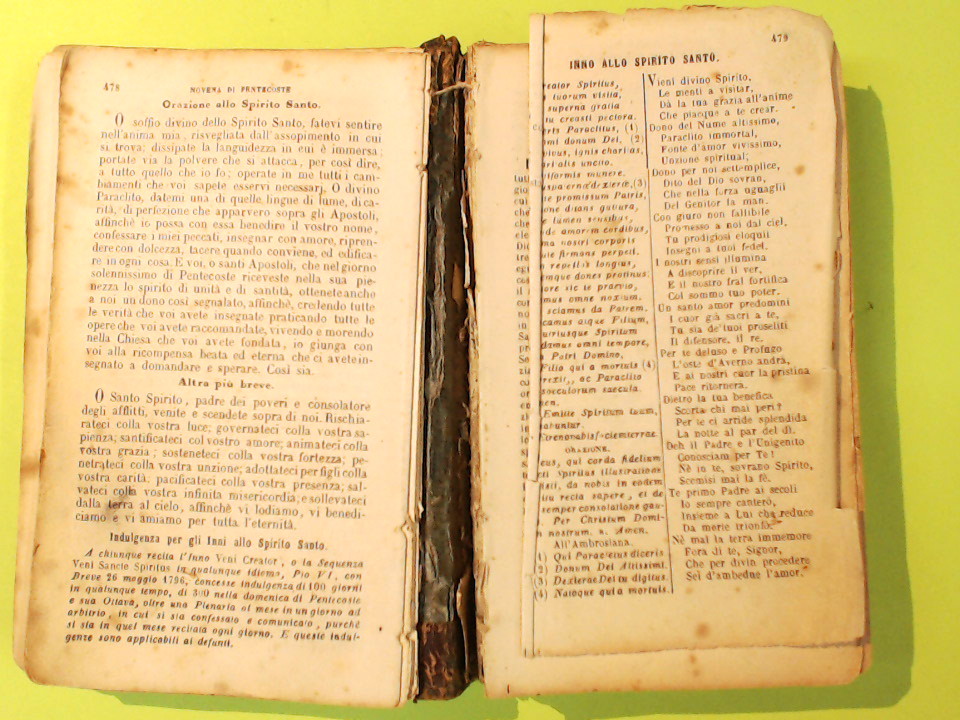 478
NOVENA DI PENTECOSTE
Orazione allo Spirito Santo.
O soffio divino dello Spirito Santo, fatevi sentire
nell'anima mia, risvegliata dall'assopimento in cui
si trova; dissipate la languidezza in cui è immersa;
portate via la polvere che si attacca, per così dire,
a tutto quello che io fo; operate in me tutti i cam-
biamenti che voi sapete esservi necessarj. O divino
Paraclito, datemi una di quelle lingue di lume, di ca-
rità, di perfezione che apparvero sopra gli Apostoli,
affinchè io possa con essa benedire il vostro nome,
confessare i miei peccati, insegnar con amore, ripren-
dere con dolcezza, tacere quando conviene, ed edifica-
re in ogni cosa. E voi, o santi Apostoli, che nel giorno
solennissimo di Pentecoste riceveste nella sua pie-
nezza lo spirito di unità e di santità, ottenete anche
a noi un dono così segnalato, affinchè, credendo tutte
le verità che voi avete insegnate praticando tutte le
opere che voi avete raccomandate, vivendo e morendo
nella Chiesa che voi avete fondata, io giunga con
voi alla ricompensa beata ed eterna che ci avete in-
segnato a domandare e sperare. Così sia.
Altra più breve.
O Santo Spirito, padre dei poveri e consolatore
degli afflitti, venite e scendete sopra di noi. Rischia-
rateci colla vostra luce; governateci colla vostra sa-
pienza; santificateci col vostro amore; animateci colla
vostra grazia; sosteneteci colla vostra fortezza; pe-
netrateci colla vostra unzione; adottateci per figli colla
vostra carità; pacificateci colla vostra presenza; sal-
vateci colla vostra infinita misericordia; e sollevateci
dalla terra al cielo, affinchè vi lodiamo, vi benedi-
ciamo e vi amiamo per tutta l'eternità.
Indulgenza per gli Inni allo Spirito Santo.
A chiunque recita l'Inno Veni Creator, o la Sequenza
Veni Sancte Spiritus in qualunque idioma, Pio VI, con
Breve 26 maggio 1796, concesse indulgenza di 100 giorni
in qualunque tempo, di 300 nella domenica di Pentecoste
e sua Ottava, oltre una Plenaria al mese in un giorno ad
arbitrio, in cui si sia confessato e comunicato, purchè
si sia in quel mese recitata ogni giorno. E queste indul-
genze sono applicabili ai defunti.
479
INNO ALLO SPIRITO SANTO.
reator Spiritus,
tuorum visita,
superna gratia
tu creasti pectora.
eris Paraclitus, (1)
imi donum Dei, (2)
vivus, ignis charitas,
iritalis unctio.
tiformis munere,
spaternae dexterae, (3)
te promissum Patris,
one ditans guttura,
e lumen sensibus,
de amorem cordibus,
ma nostri corporis
ute firmans perpeti.
n repellas longius,
emque dones protinus;
tore sic te praevio,
mus omne noxium.
sciamus da Patrem,
camus atque Filium,
utriusque Spiritum
damus omni tempore.
o Patri Domino,
Filio qui a mortuis (4)
rexit, ac Paraclito
saeculorum saecula.
en.
Emitte Spiritum tuum,
eabuntur.
Et renovabis faciem terrae.
ORAZIONE.
eus, qui corda fidelium
cti Spiritus illustratione
isti, da nobis in eodem
itu recta sapere, et de
semper consolatione gau-
Per Christum Domi-
n nostrum. R. Amen.
All'Ambrosiana.
(1) Qui Paracletus diceris
(2) Donum Dei Altissimi.
(3) Dexterae Dei tu digitus.
(4) Natoque qui a mortuis.
Vieni divino Spirito,
Le menti a visitar,
Dà la tua grazia all'anime
Che piacque a te crear.
Dono del Nume altissimo,
Paraclito immortal,
Fonte d'amor vivissimo,
Unzione spiritual;
Dono per noi settemplice,
Dito del Dio sovran,
Che nella forza uguagli
Del Genitor la man.
Con giuro non fallibile
Promesso a noi dal ciel,
Tu prodigiosi eloquii
Insegni a tuoi fedel.
I nostri sensi illumina
A discoprire il ver,
E il nostro fral fortifica
Col sommo tuo poter.
Un santo amor predomini
I cuor già sacri a te,
Tu sia de' tuoi proseliti
Il difensore, il re.
Per te deluso e Profugo
L'oste d'Averno andrà,
E ai nostri cuor la pristina
Pace ritornerà.
Dietro la tua benefica
Scorta chi mai perì?
Per te ci arride splendida
La notte al par del dì.
Deh il Padre e l'Unigenito
Conosciam per Te!
Nè in te, sovrano Spirito,
Scemisi mai la fè.
Te primo Padre ai secoli
Io sempre canterò,
Insieme a Lui che reduce
Da morte trionfò.
Nè mai la terra immemore
Fora di te, Signor,
Che per divin procedere
Sei d'ambedue l'amor.